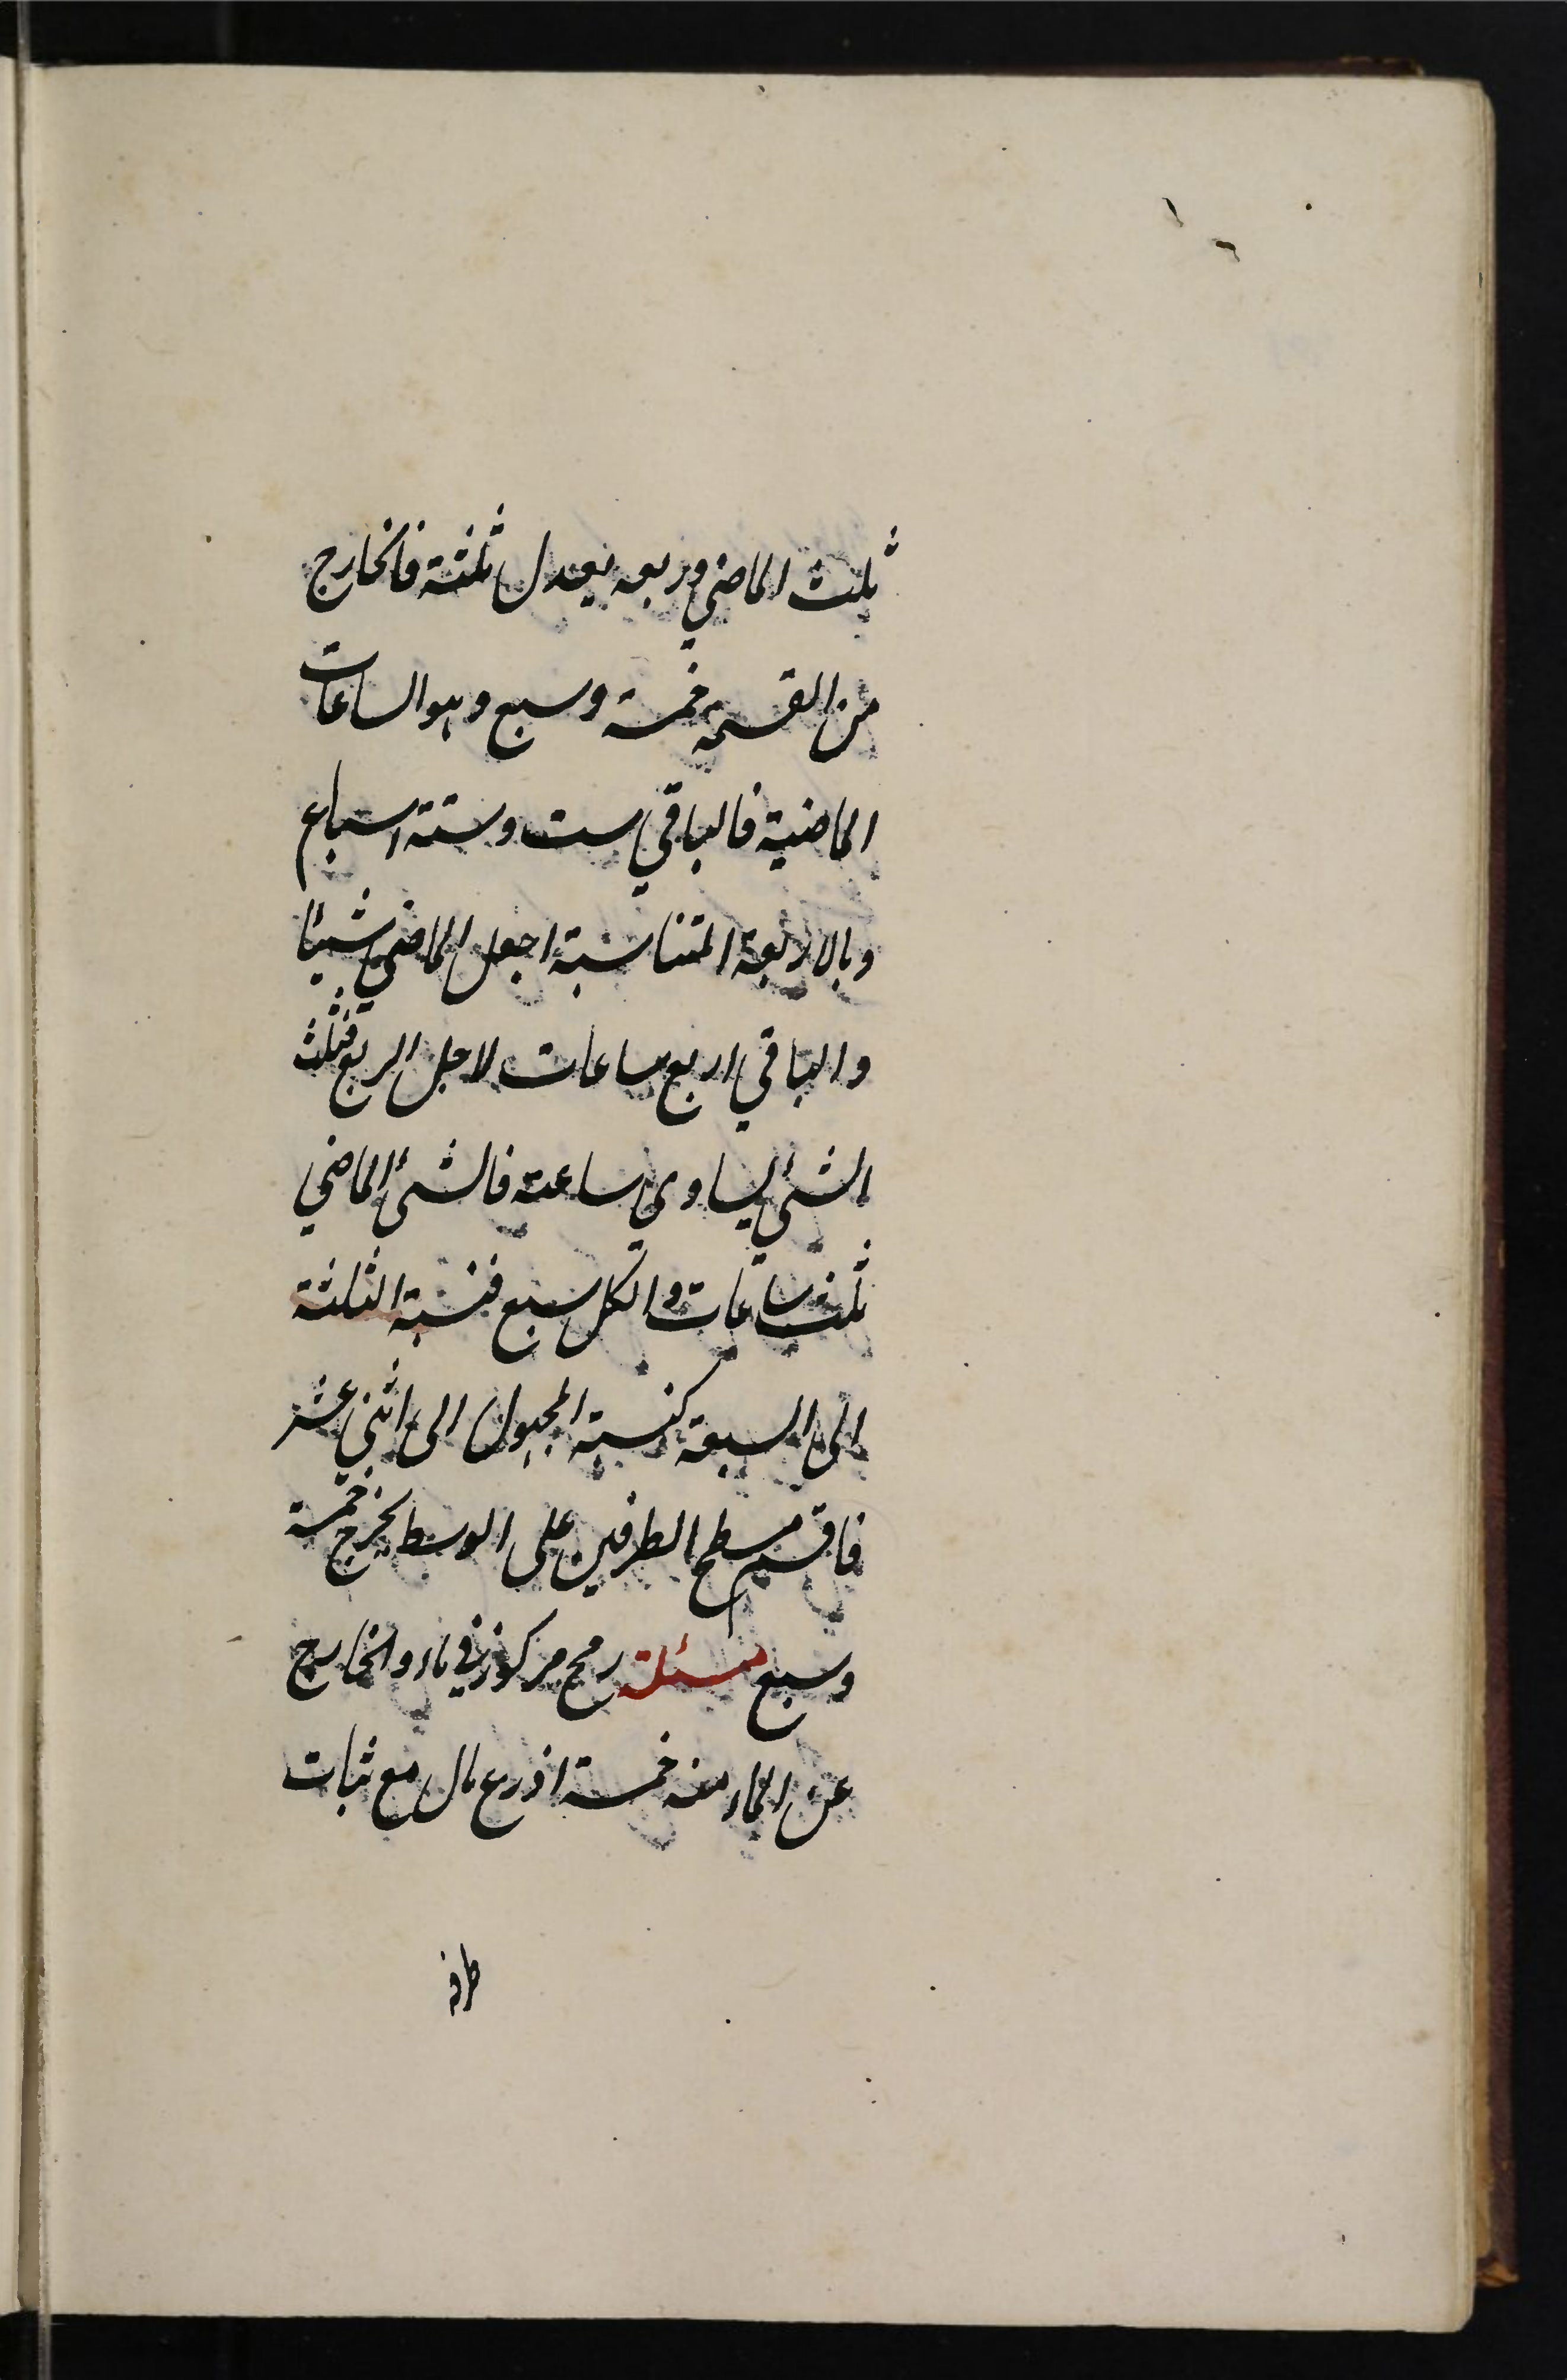 ثلث الماضي وربعه يعدل ثلثة فالخارج
من القسمة خمسة وسبع وهو الساعات
الماضية فالباقي ست وستة اسباع
وبالاربعة المتناسبة اجعل الماضي شيئا
والباقي اربع ساعات لاجل الربع فثلث
الشئ يساوي ساعة فالشئ الماضي
ثلث ساعات والكل سبع فنسبة الثلثة
الى السبعة كنسبة المجهول الى اثني عشر
فاقسم مسطح الطرفين على الوسط يخرج خمسة
وسبع مسئلة رمح مركوز في ماء والخارج
عن الماء منه خمسة اذرع مال مع ثبات
طرفه